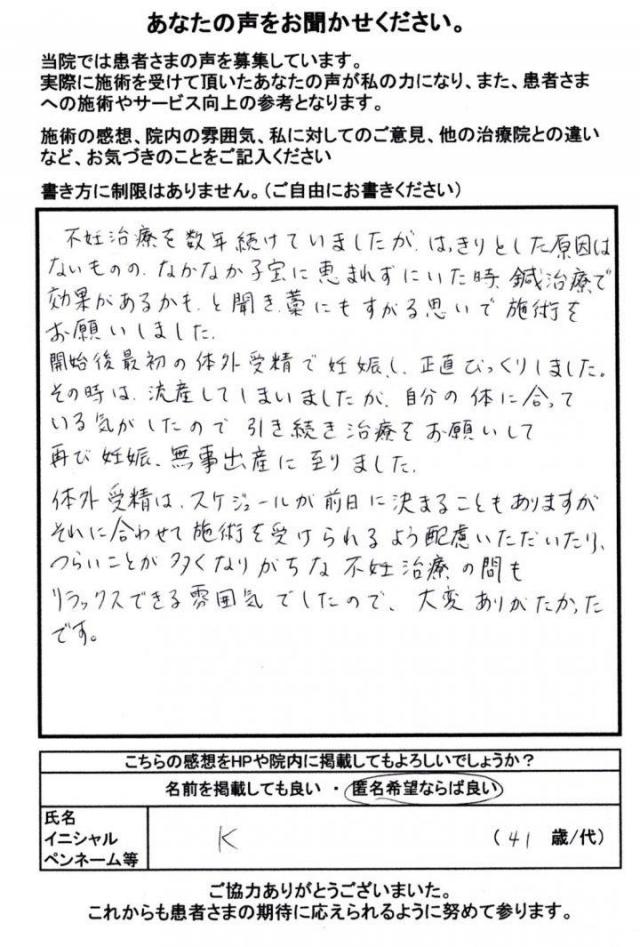 あなたの声をお聞かせください。
当院では患者さまの声を募集しています。
実際に施術を受けて頂いたあなたの声が私の力になり、また、患者さま
への施術やサービス向上の参考となります。
施術の感想、院内の雰囲気、私に対してのご意見、他の治療院との違い
など、お気づきのことをご記入ください
書き方に制限はありません。(ご自由にお書きください)
不妊治療を数年続けていましたが、はっきりとした原因は
ないものの、なかなか子宝に恵まれずにいた時、鍼治療で
効果があるかも、と聞き、藁にもすがる思いで施術を
お願いしました。
開始後最初の体外受精で妊娠し、正直びっくりしました。
その時は、流産してしまいましたが、自分の体に合って
いる気がしたので引き続き治療をお願いして
再び妊娠、無事出産に至りました。
体外受精は、スケジュールが前日に決まることもありますが
それに合わせて施術を受けられるよう配慮いただいたり、
つらいことが多くなりがちな不妊治療の間も
リラックスできる雰囲気でしたので、大変ありがたかった
です。
こちらの感想をHPや院内に掲載してもよろしいでしょうか?
名前を掲載しても良い ・ 匿名希望ならば良い
氏名
イニシャル
ペンネーム等
K (41 歳/代)
ご協力ありがとうございまいた。
これからも患者さまの期待に応えられるように努めて参ります。